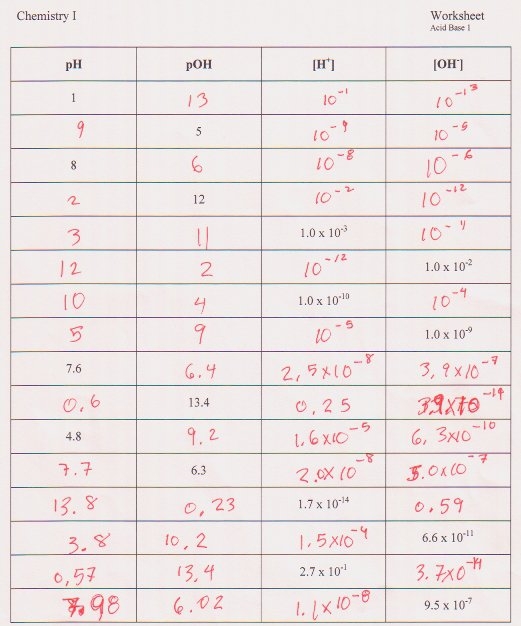 Chemistry I Worksheet
Acid Base 1
pH pOH [H⁺] [OH⁻]
1 13 10⁻¹ 10⁻¹³
9 5 10⁻⁹ 10⁻⁵
8 6 10⁻⁸ 10⁻⁶
2 12 10⁻² 10⁻¹²
3 11 1.0 x 10⁻³ 10⁻¹¹
12 2 10⁻¹² 1.0 x 10⁻²
10 4 1.0 x 10⁻¹⁰ 10⁻⁴
5 9 10⁻⁵ 1.0 x 10⁻⁹
7.6 6.4 2,5x10⁻⁸ 3,9x10⁻⁷
0,6 13.4 0,25
4.8 9.2 1,6x10⁻⁵ 6,3x10⁻¹⁰
7.7 6.3 2.0x10⁻⁸ 5.0x10⁻⁷
13.8 0,23 1.7 x 10⁻¹⁴ 0,59
3.8 10,2 1.5x10⁻⁴ 6.6 x 10⁻¹¹
0,57 13,4 2.7 x 10⁻¹ 3.7x10⁻¹⁴
7.98 6.02 1.1x10⁻⁸ 9.5 x 10⁻⁷